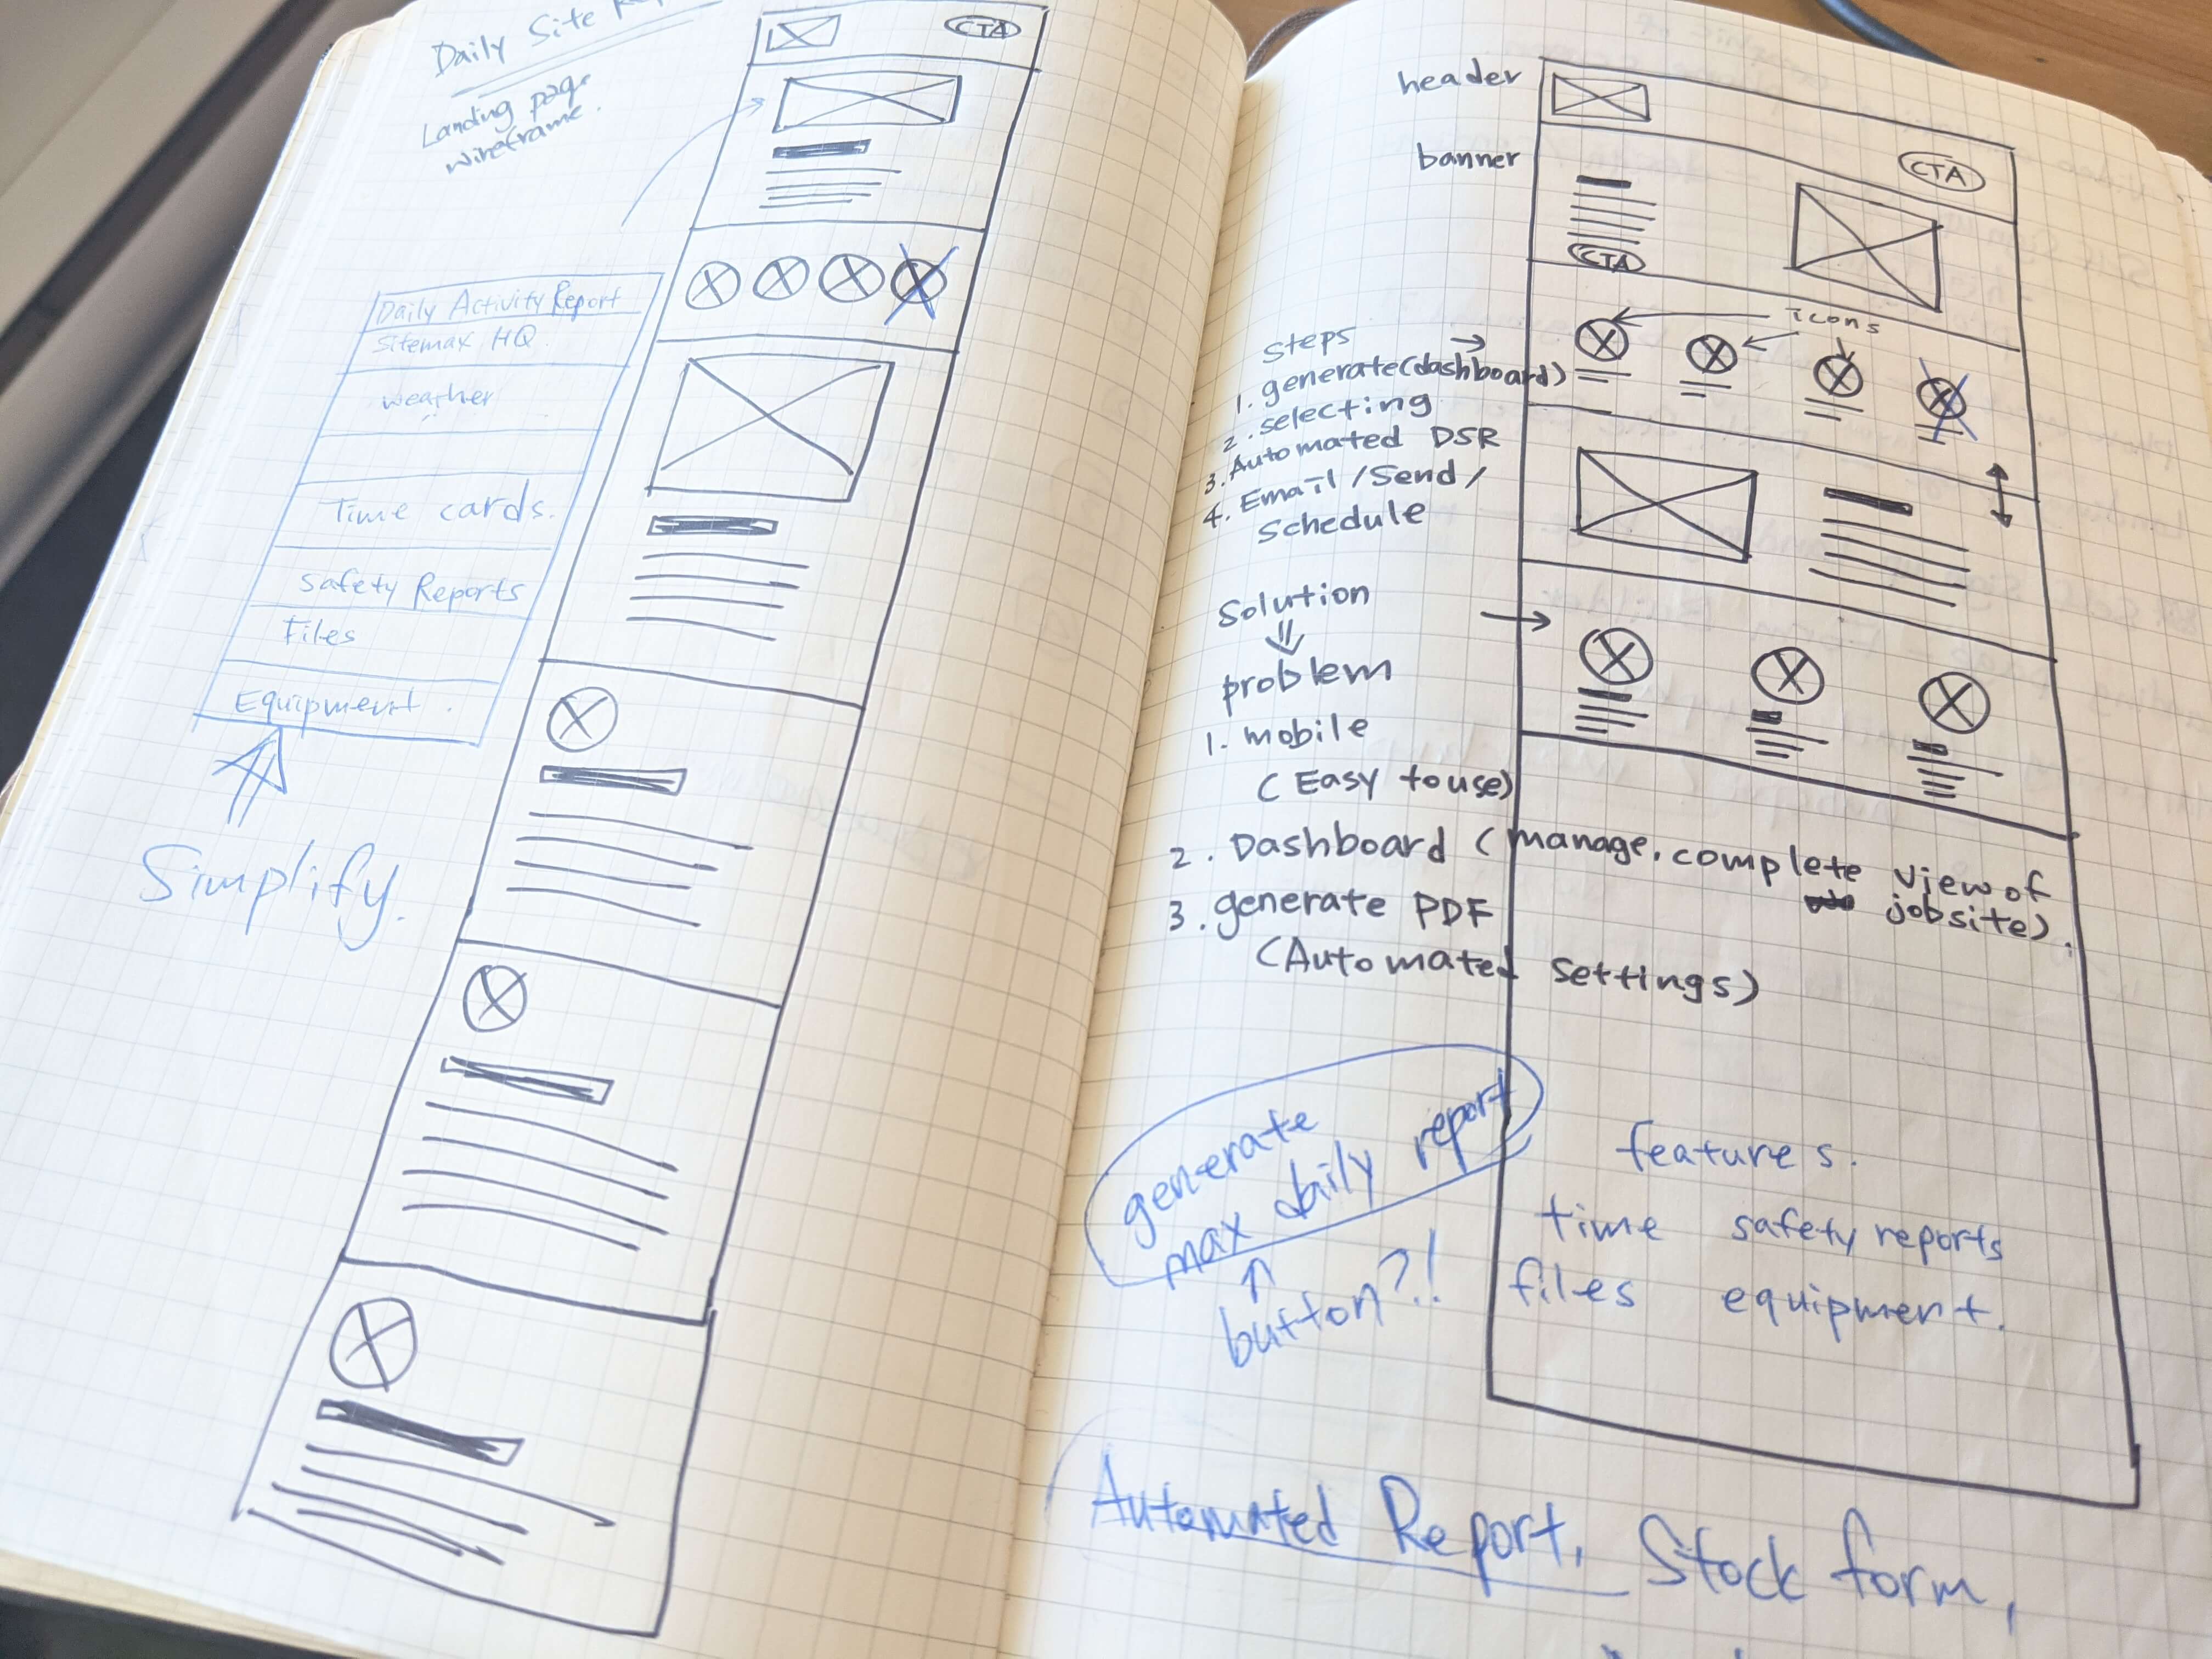 Daily Site
Landing page
wireframe.
CTA
Daily Activity Report
Sitemax HQ
weather
Time cards.
Safety Reports
Files
Equipment.
Simplify.
header
banner
CTA
CTA
icons
Steps
1. generate(dashboard)
2. selecting
3. Automated DSR
4. Email/Send/
Schedule
Solution
problem
1. mobile
(Easy to use)
2. Dashboard (manage. complete view of
jobsite).
3. generate PDF
(Automated settings)
generate
max daily report
button?!
features.
time safety reports
files equipment.
Automated Report. Stock form,